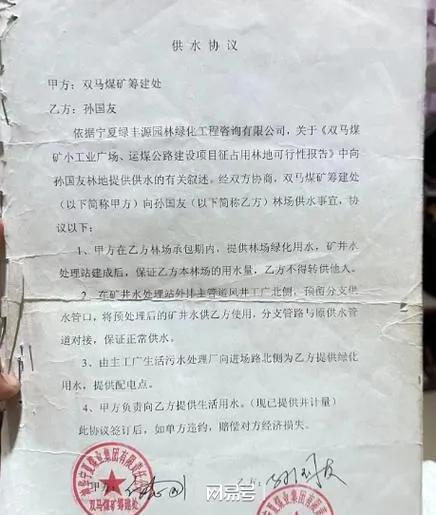 供水协议
甲方：双马煤矿筹建处
乙方：孙国友
依据宁夏绿丰源园林绿化工程咨询有限公司，关于《双马煤
矿小工业广场、运煤公路建设项目征占用林地可行性报告》中向
孙国友林地提供供水的有关叙述。经双方协商，双马煤矿筹建处
（以下简称甲方）向孙国友（以下简称乙方）林场供水事宜，协
议以下：
1、甲方在乙方林场承包期内，提供林场绿化用水，矿井水
处理站建成后，保证乙方本林场的用水量，乙方不得转供他人。
2、在矿井水处理站外排主管道风井工广北侧，预留分支供
水管口，将预处理后的矿井水供乙方使用，分支管路与原供水管
道对接，保证正常供水。
3、由主工广生活污水处理厂向进场路北侧为乙方提供绿化
用水，提供配电点。
4、甲方负责向乙方提供生活用水。（现已提供并计量）
此协议签订后，如单方违约，赔偿对方经济损失。
甲方：
乙方：孙国友
宁夏煤业集团有限责任
双马煤矿筹建处
网易号